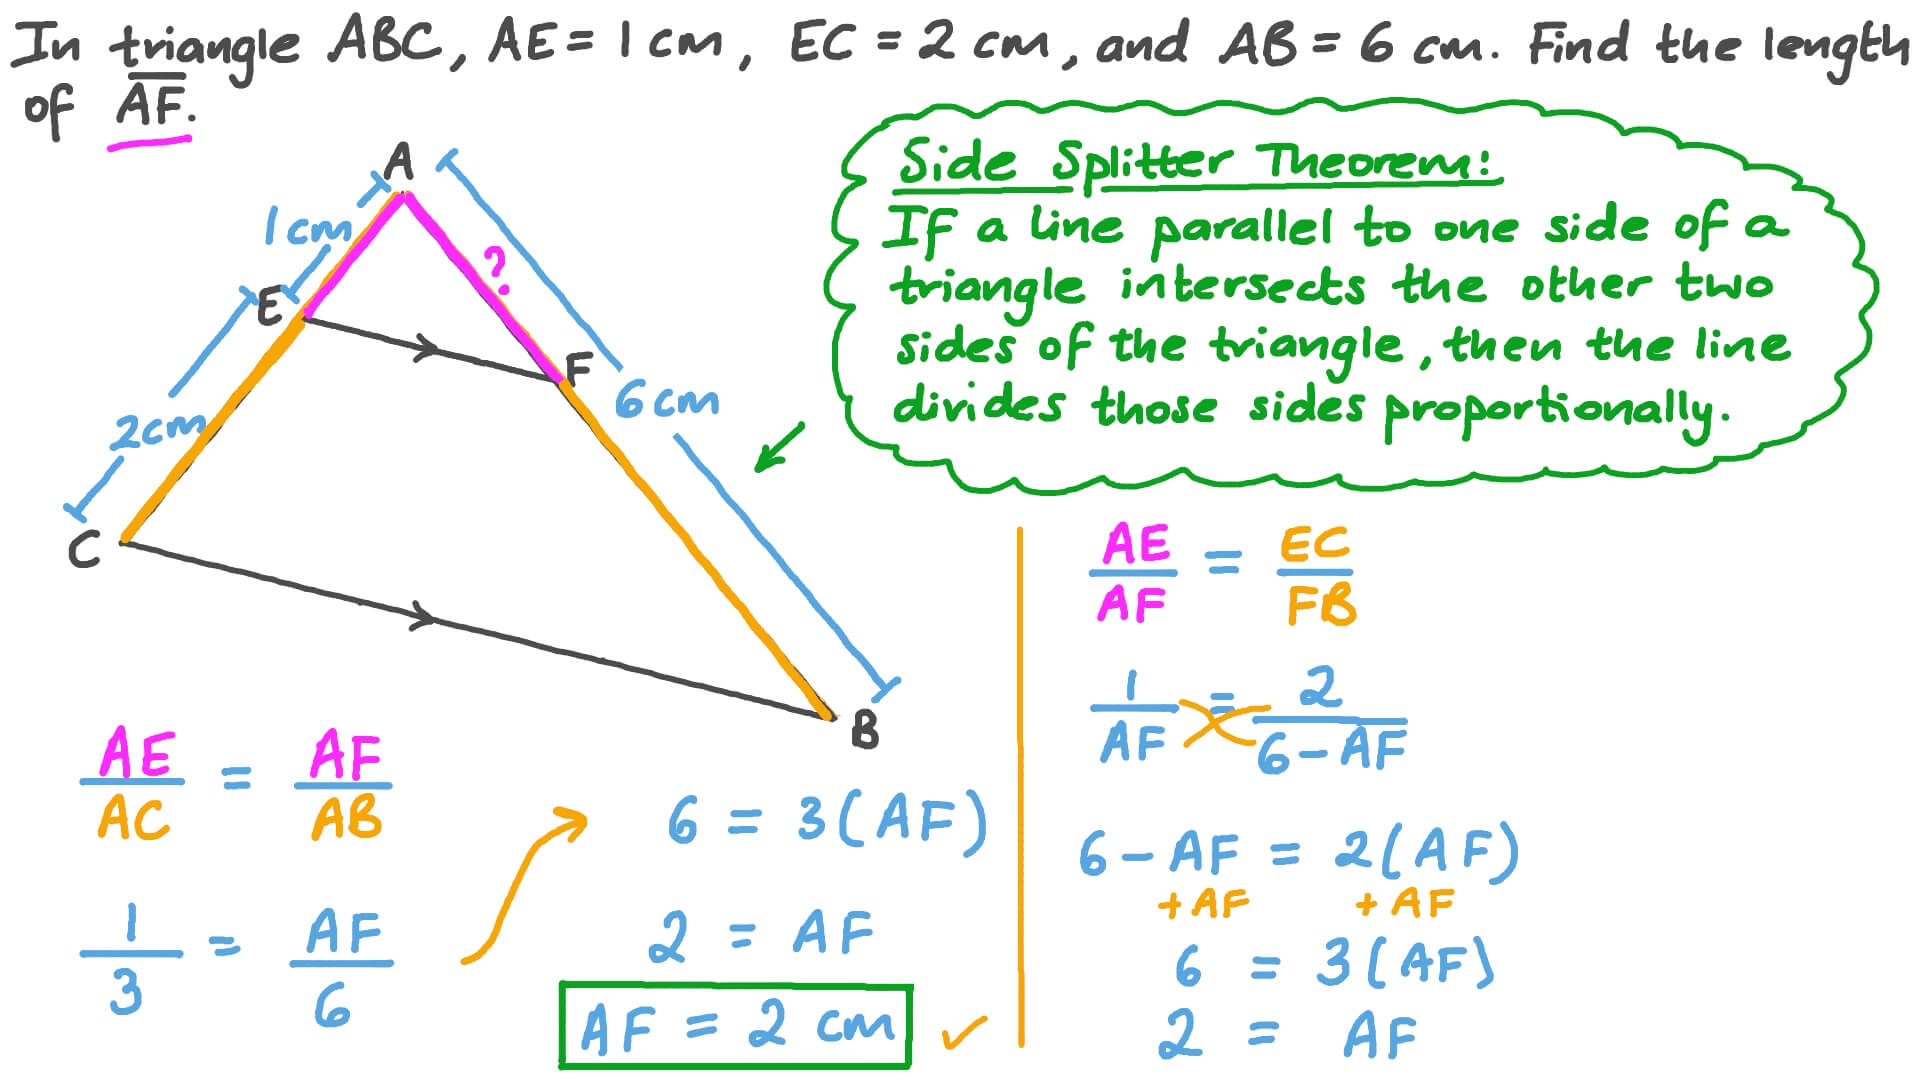 In triangle ABC, AE = 1 cm, EC = 2 cm, and AB = 6 cm. Find the length
of AF.
Side Splitter Theorem:
If a line parallel to one side of a
triangle intersects the other two
sides of the triangle, then the line
divides those sides proportionally.
A
1 cm
?
E
F
6 cm
2 cm
C
B
AE/AC = AF/AB
1/3 = AF/6
6 = 3(AF)
2 = AF
AF = 2 cm ✓
AE/AF = EC/FB
1/AF = 2/6-AF
6 - AF = 2(AF)
+AF +AF
6 = 3(AF)
2 = AF